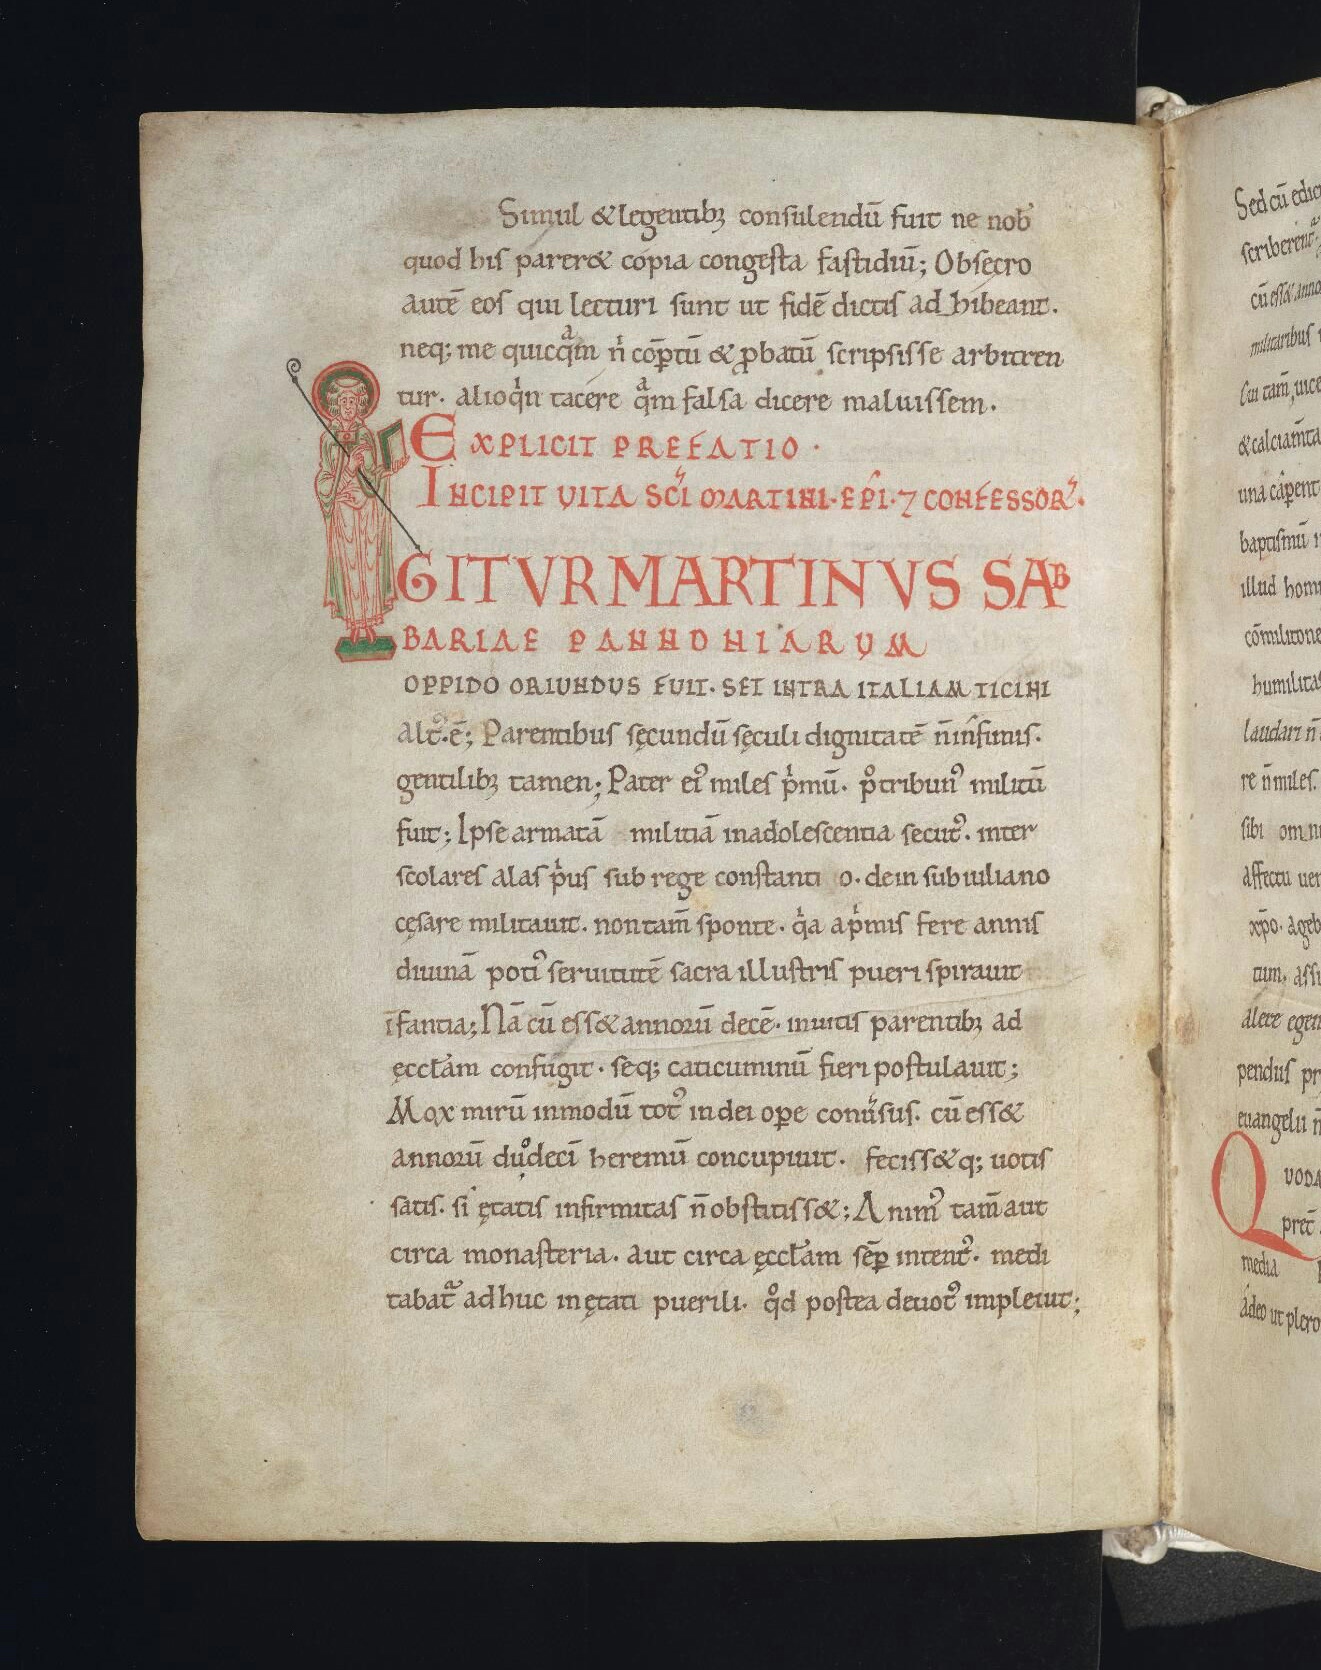 Simul &legentibꝫ consulendū fuit ne nob᾽
quod his parer& copia congesta fastidiū; Obsęcro
autē eos qui lecturi sunt ut fidē dictis ad hibeant.
neq; me quicqͣm n̄ cōp̄tū & ꝓbatū scripsisse arbitren
tur. alioqͥn tacere qͣm falsa dicere maluissem.
EXPLICIT PREFATIO.
INCIPIT VITA SC̄I MARTINI. EP̄I. ⁊ CONFESSORꝭ.
GITVR MARTINVS SAB
BARIAE PANNONIARUM
OPPIDO ORIUNDUS FUIT. SET INTRA ITALIAM TICINI
alt᾽.ē; Parentibus sęcundū sęculi dignitatē n̄ īnfimis.
gentilibꝫ tamen; Pater ei᾽ miles pͥmū. p᾽tribun᾽ militū
fuit; Ipse armatā militiā inadolescentia secut᾽. inter
scolares alas pͥus sub rege constanti o. dein sub iuliano
cęsare militauit. non tam̄ sponte. qͥa apͥmis fere annis
diuinā poti᾽ seruitutē sacra illustris pueri spirauit
īfantia; Nā cū ess& annorū decē. inuitis parentibꝫ ad
ęccłam confugit. seq; caticuminū fieri postulauit;
Mox mirū inmodū tot᾽ in dei oꝑe conuͥsus. cū ess&
annorū duͦdecī heremū concupiuit. feciss&q; uotis
satis. si ętatis infirmitas n̄ obstitiss&; Anim᾽ tam̄ aut
circa monasteria. aut circa ęccłam sēꝑ intent᾽. medi
tabat᾽ adhuc in ętati puerili. qͦd postea deuot᾽ impleiut;
Sed cū edic
scriberent᾽
cū ess& anno
militaribus
Cui tam̄ uice
&calciam̄ta
una cāpent
baptismū
illud hom
cōmilitone
humilitas
laudari n̄
re n̄ miles.
sibi omni
affectu uer
xp̄o. ageb
tum. assi
alere egen
pendus pr
euangelii n̄
QVODA
pret̄
media
adeo ut plero